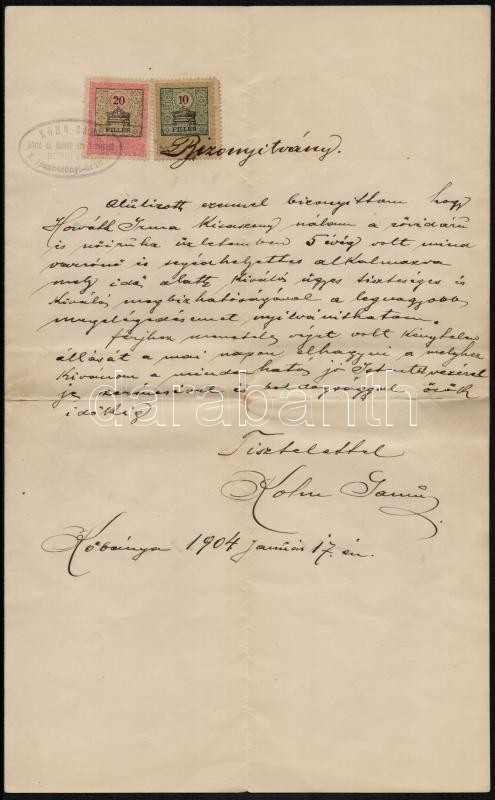 20 10
FILLÉR FILLÉR
KOHN
Bizonyitvány.
Alúlirott ezennel bizonyittom hogy
Horváth Irma kisaszony nálam a rövidárú
és nőiruha üzletemben 5 évig volt mind
varrónő és segéd alkalmazva
mely idő alatt kiváló ügyes tisztességes és
kiváló megbizhatóságával a legnagyobb
megelégedésemet nyilvánithatom.
férjhez menetele véget volt kénytelen
állását a mai napon elhagyni a melyhez
kivánom a mindenható jó Isten
és boldogsággal örök
időkig
darabanth
Tisztelettel
Kohn Samú
Kőbánya 1904 Január 17. én.